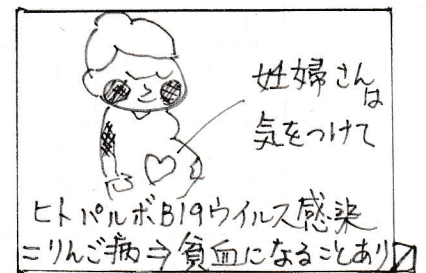 妊婦さんは
気をつけて
ヒトパルボB19ウイルス感染
=りんご病⇒貧血になることあり